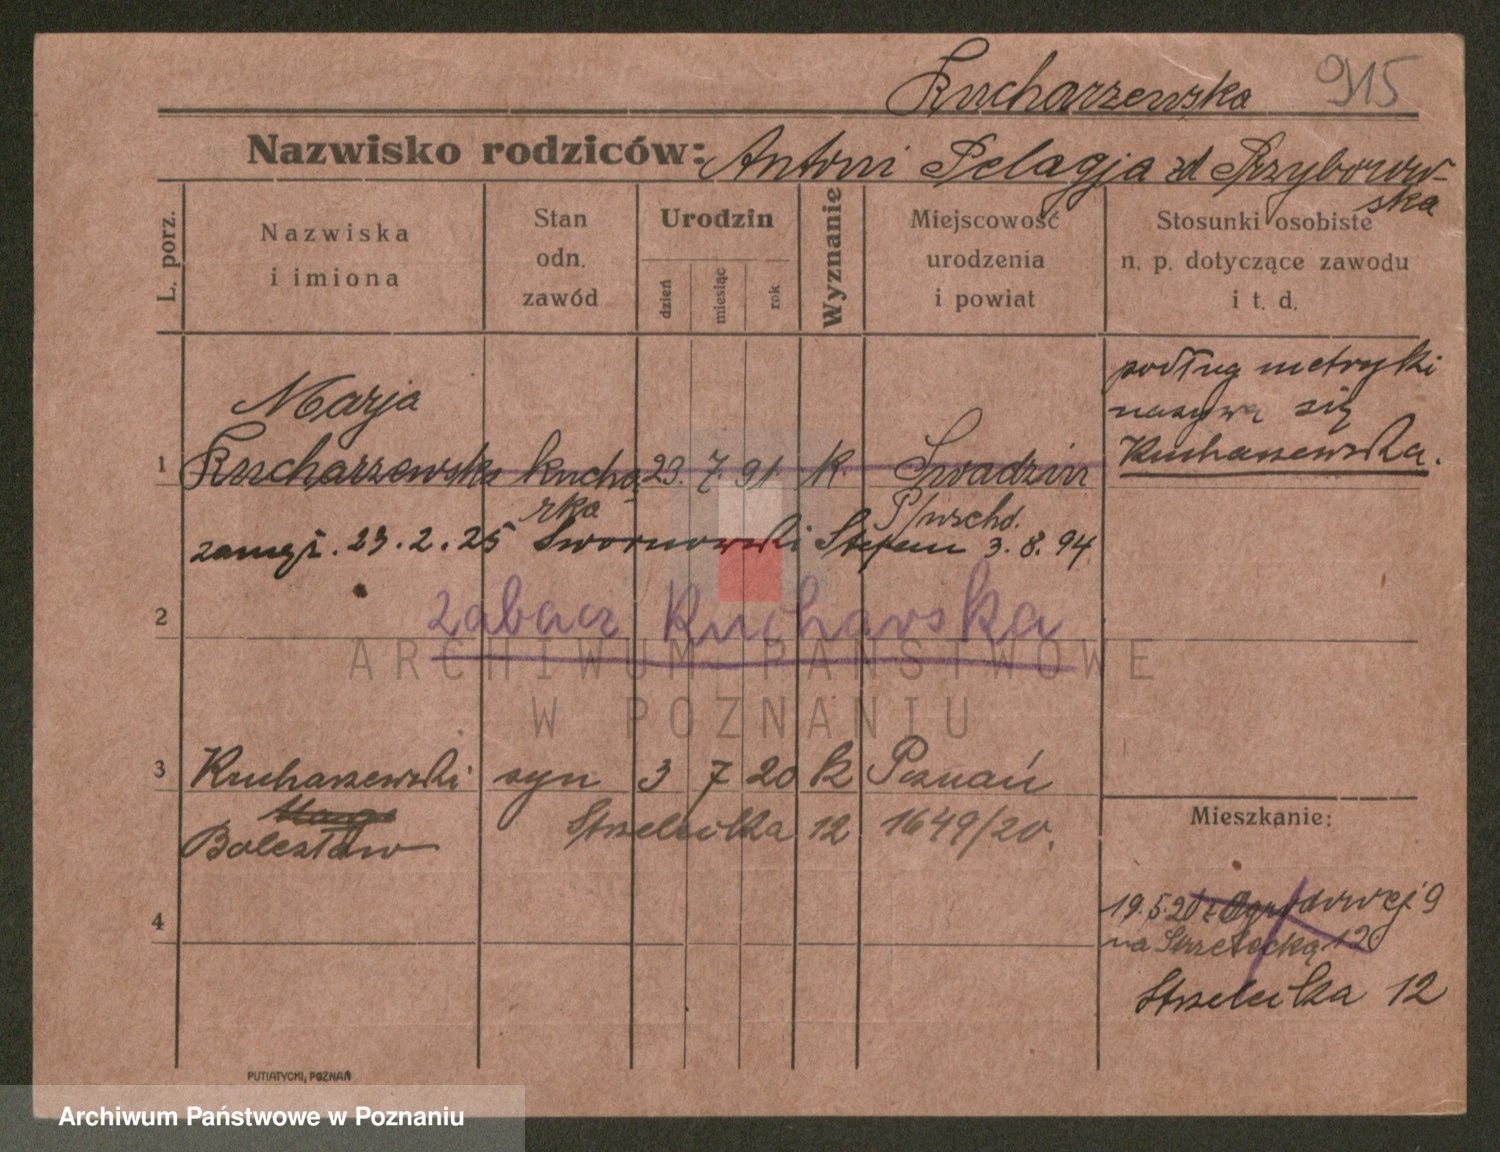 Kucharzewska 915
Nazwisko rodziców: Antoni Pelagja zd Przyborow-
ska
L. porz.
Nazwiska
i imiona
Stan
odn.
zawód
Urodzin
dzień
miesiąc
rok
Wyznanie
Miejscowość
urodzenia
i powiat
Stosunki osobiste
n. p. dotyczące zawodu
i t. d.
podług metryki
nazywa się
Kucharzewska.
Marja
1 Kucharzewska kucha- 29. 7. 91. k. Swadzim
rka P/wschd.
zamęż. 23. 2. 25 Swornowski Stefan 3. 8. 94
2 zobacz Kucharska
3 Kucharzewski syn 3 7 20 k Poznań
Bolesław Strzelecka 12 1649/20.
4
Mieszkanie:
19.5.20 z Ogrodowej 9
na Strzelecką 12
Strzelecka 12
PUTIATYCKI, POZNAŃ
ARCHIWUM PAŃSTWOWE
W POZNANIU
Archiwum Państwowe w Poznaniu